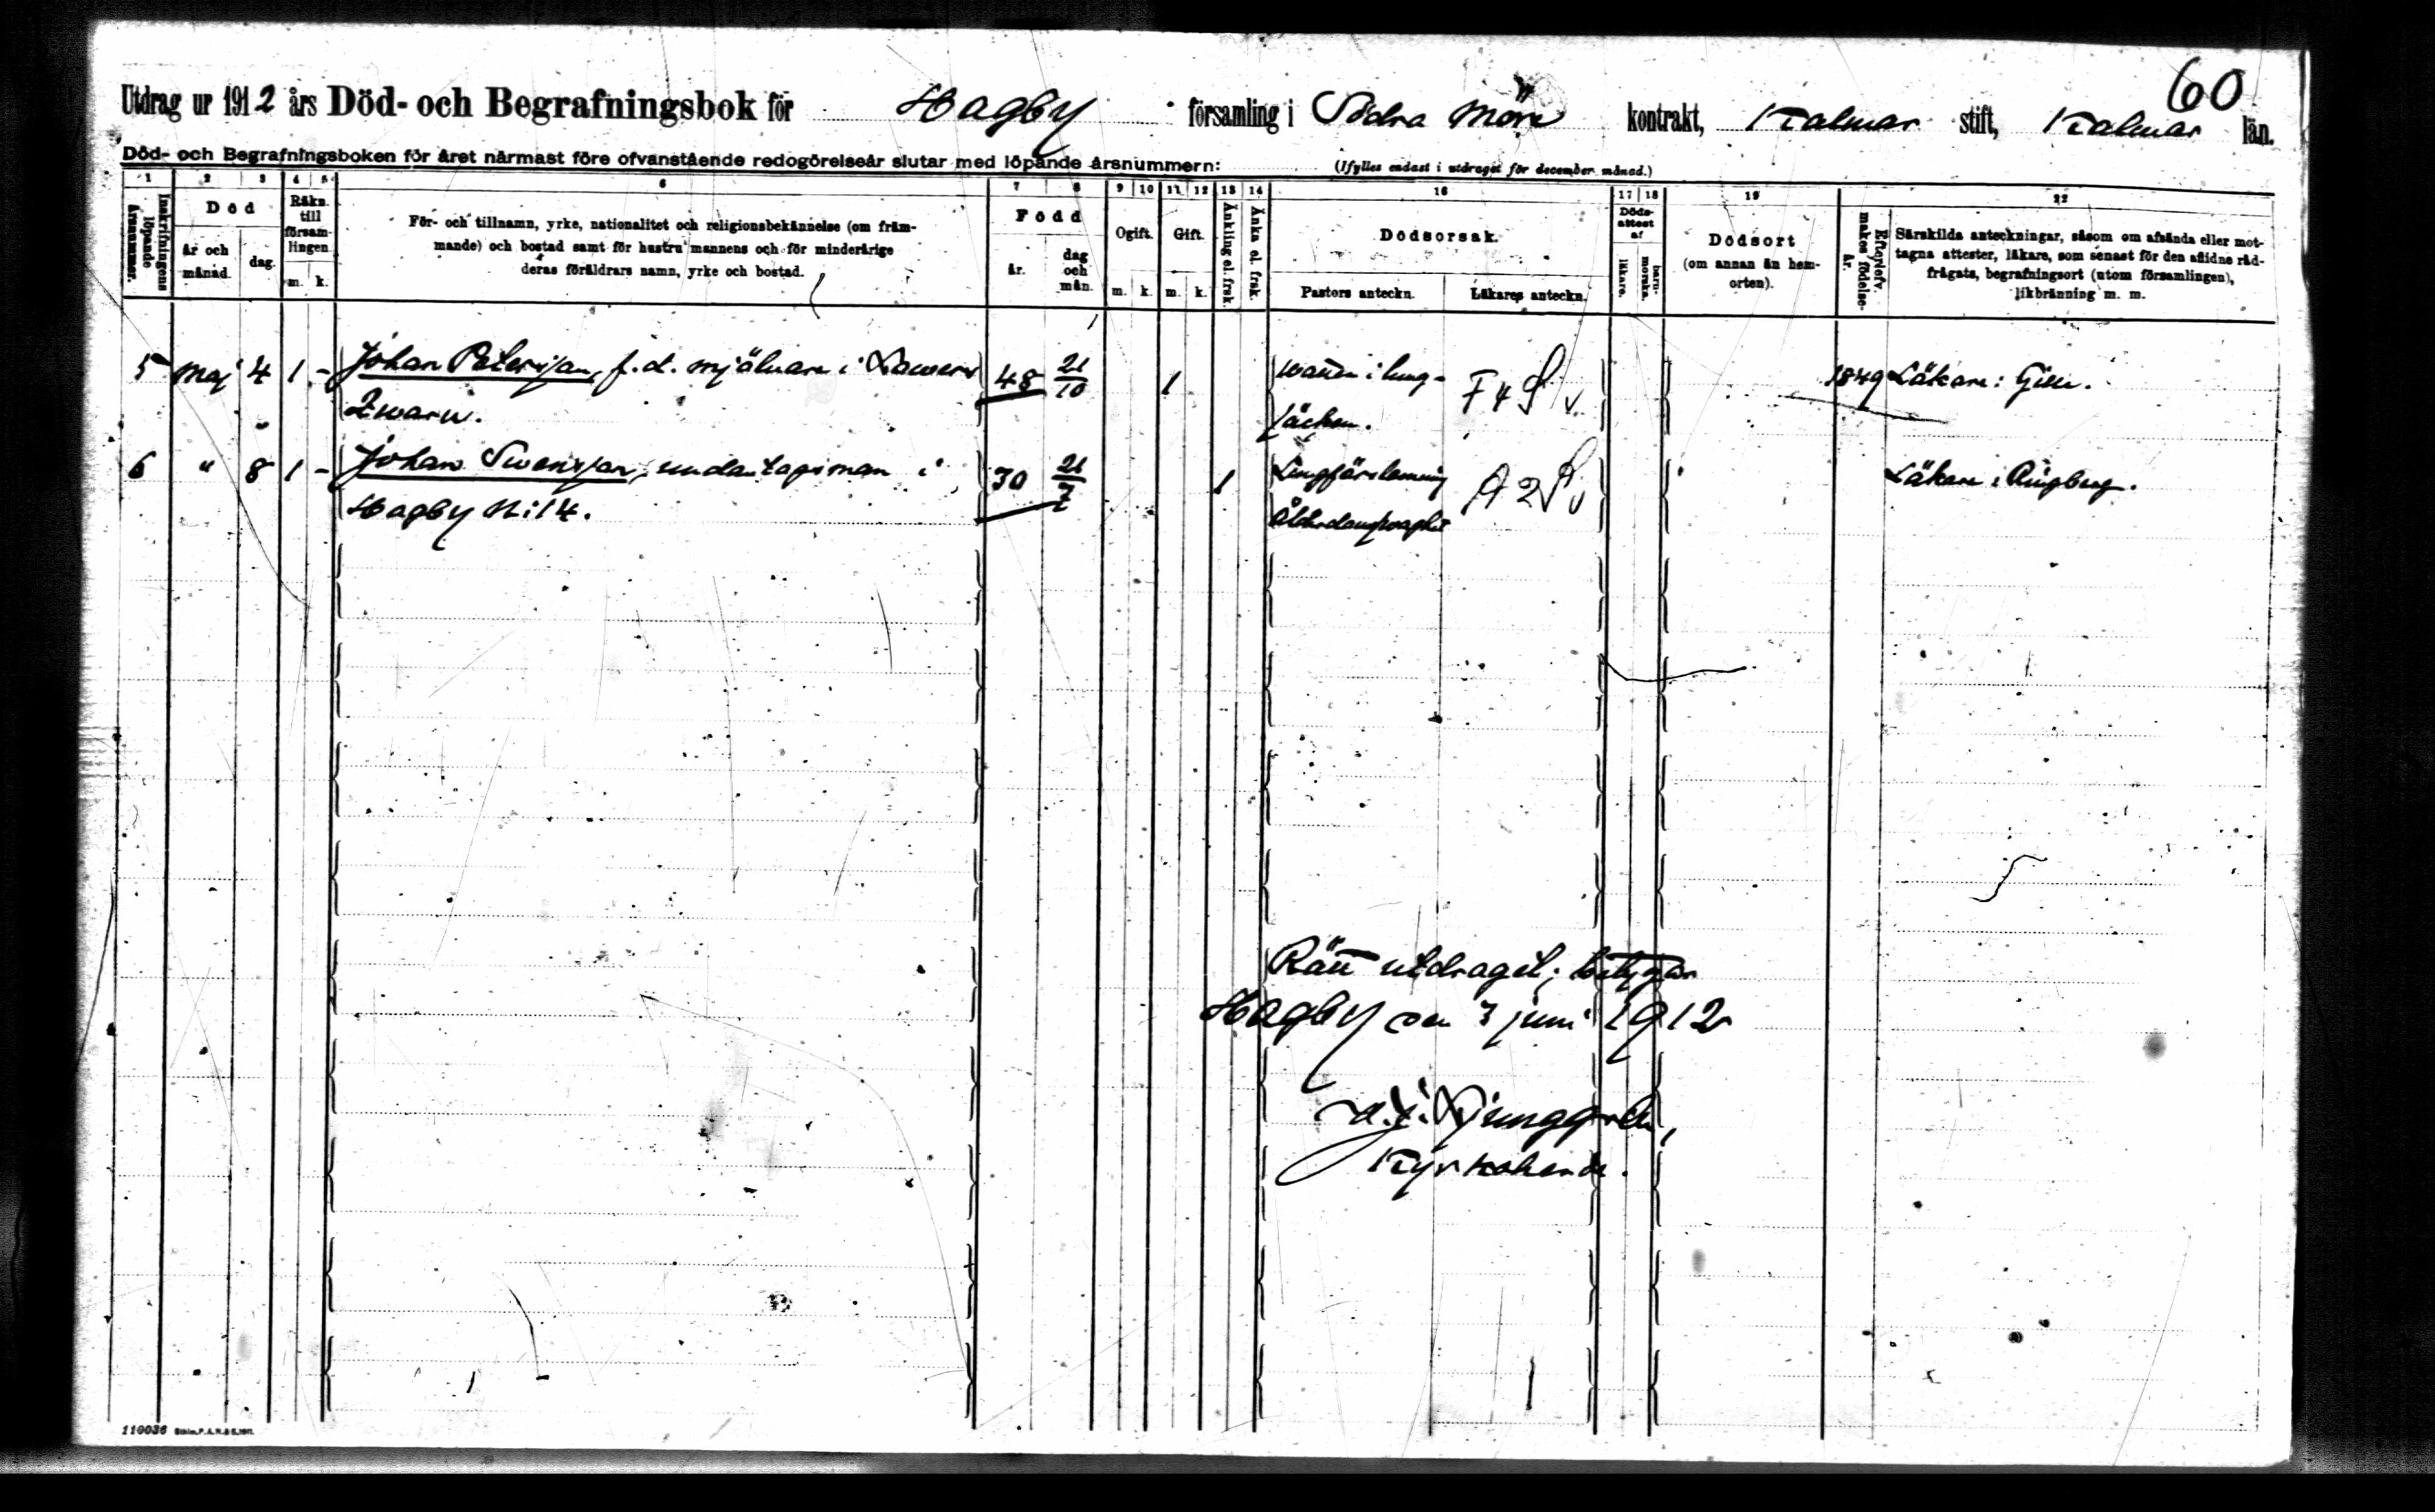 60
Utdrag ur 1912 års Död- och Begrafningsbok för Hagby församling i Södra Möre kontrakt, Kalmar stift, Kalmar län.
Död- och Begrafningsboken för året närmast före ofvanstående redogörelseår slutar med löpande årsnummern: (Ifylles endast i utdraget för december månad.)
1 2 3 4 5 6 7 8 9 10 11 12 13 14 16 17 18 19 22
Inskrifningens löpande årsnummer.
Död
år och månad.
dag.
Räkn. till församlingen.
m. k.
För- och tillnamn, yrke, nationalitet och religionsbekännelse (om främmande) och bostad samt för hustru mannens och för minderårige deras föräldrars namn, yrke och bostad.
Född
år.
dag och mån.
Ogift.
m. k.
Gift.
m. k.
Änkling el. frsk.
Änka el. frsk.
Dödsorsak.
Pastors anteckn.
Läkares anteckn.
Dödsattest af
läkare.
barnmorska.
Dödsort
(om annan än hemorten).
Efterlefv. makes födelseår.
Särskilda anteckningar, såsom om afsända eller mottagna attester, läkare, som senast för den aflidne rådfrågats, begrafningsort (utom församlingen), likbränning m. m.
5 Maj 4 1 - Johan Petersson, f.d. mjölnare i 48 21/10 1 Vatten i lung- F 4 1849 Läkare:
säcken.
6 " 8 1 - Johan Svensson, undantagsman i 30 21/7 1 A 2 Läkare: Ringberg.
Hagby N:14.
Rätt utdraget; betygar
Hagby den 3 juni 1912
Ljunggren,
Kyrkoherde.
110036 Sthlm, P. A. N. & S. 1911.